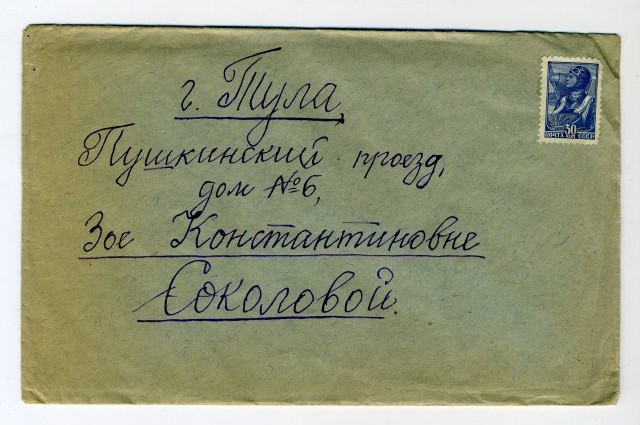 г. Тула,
Пушкинский проезд,
дом №6,
Зое Константиновне
Соколовой.
30
ПОЧТА СССР